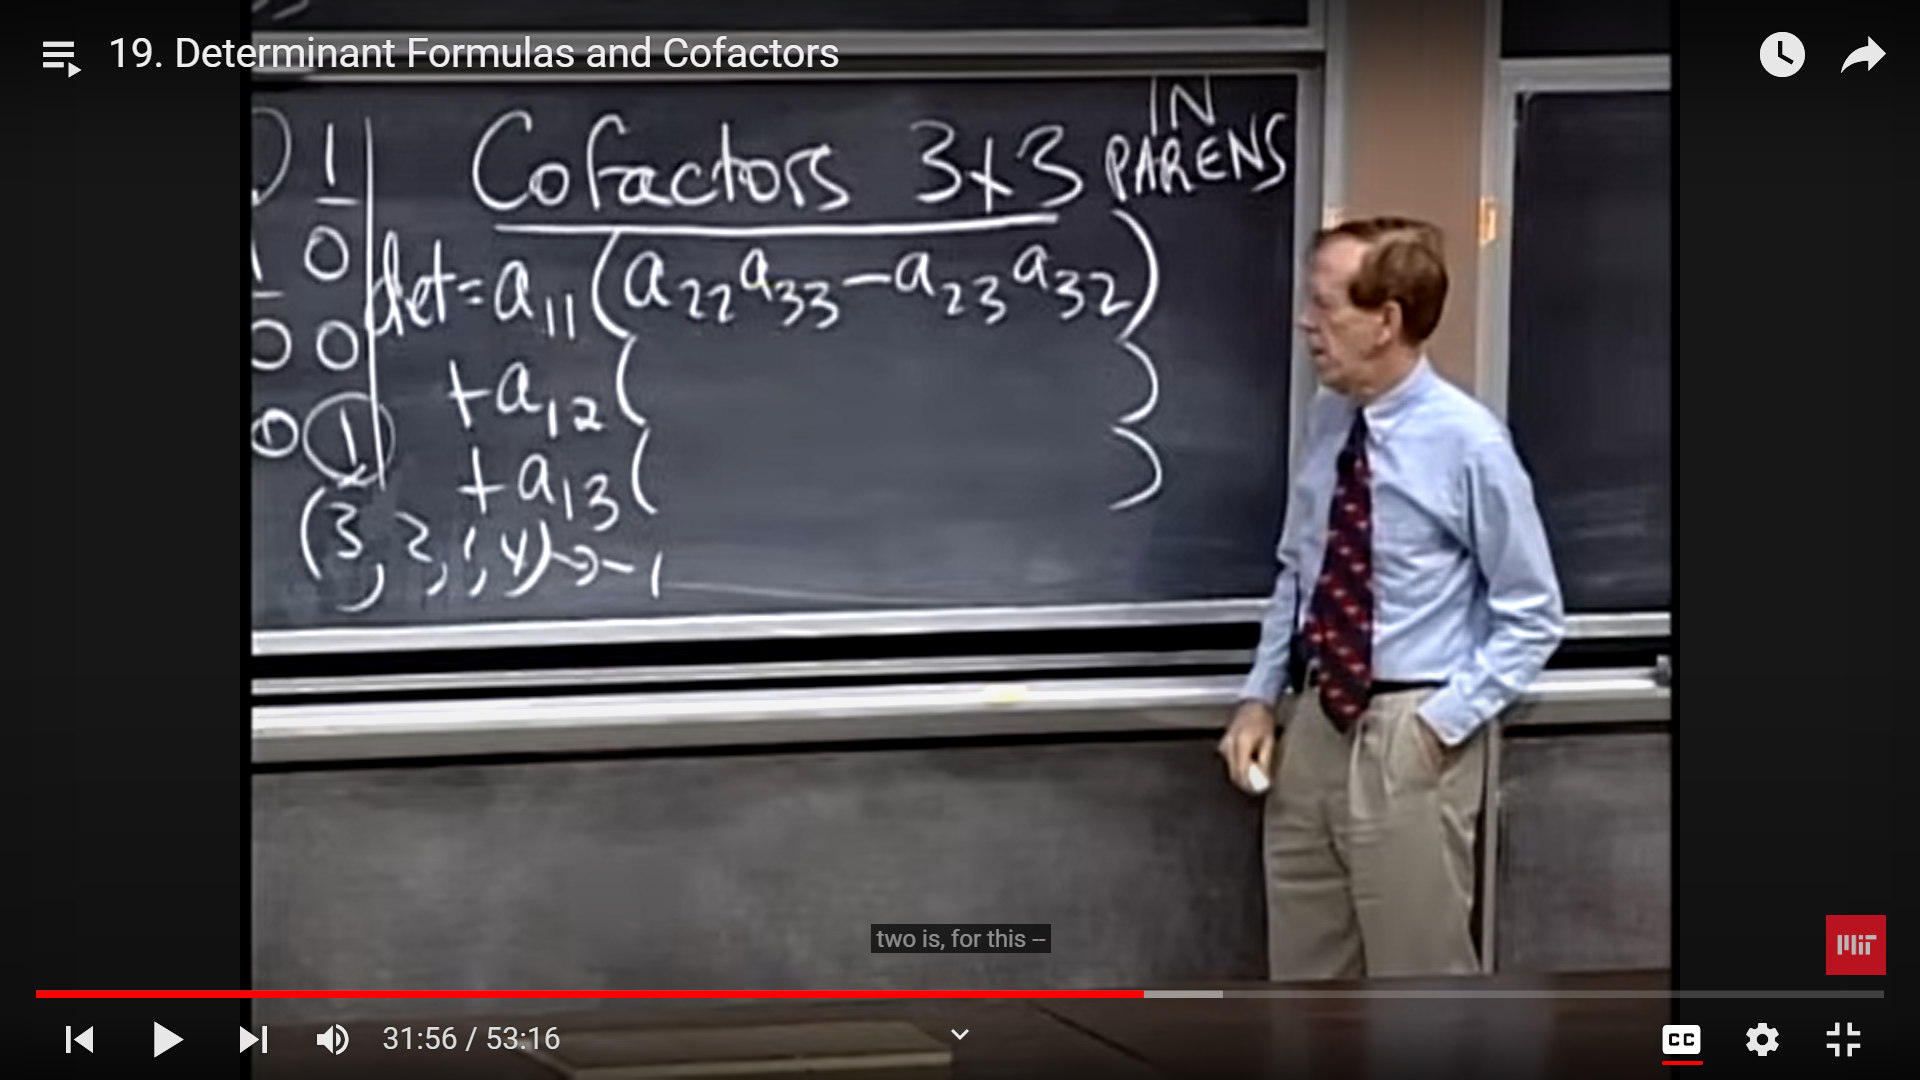 19. Determinant Formulas and Cofactors
IN
Cofactors 3x3 PARENS
1
0
0 0
0 1
det = a11(a22a33 − a23a32)
+a12( )
+a13( )
(3, 2, 1, 4) → −1
two is, for this --
MIT
31:56 / 53:16
CC